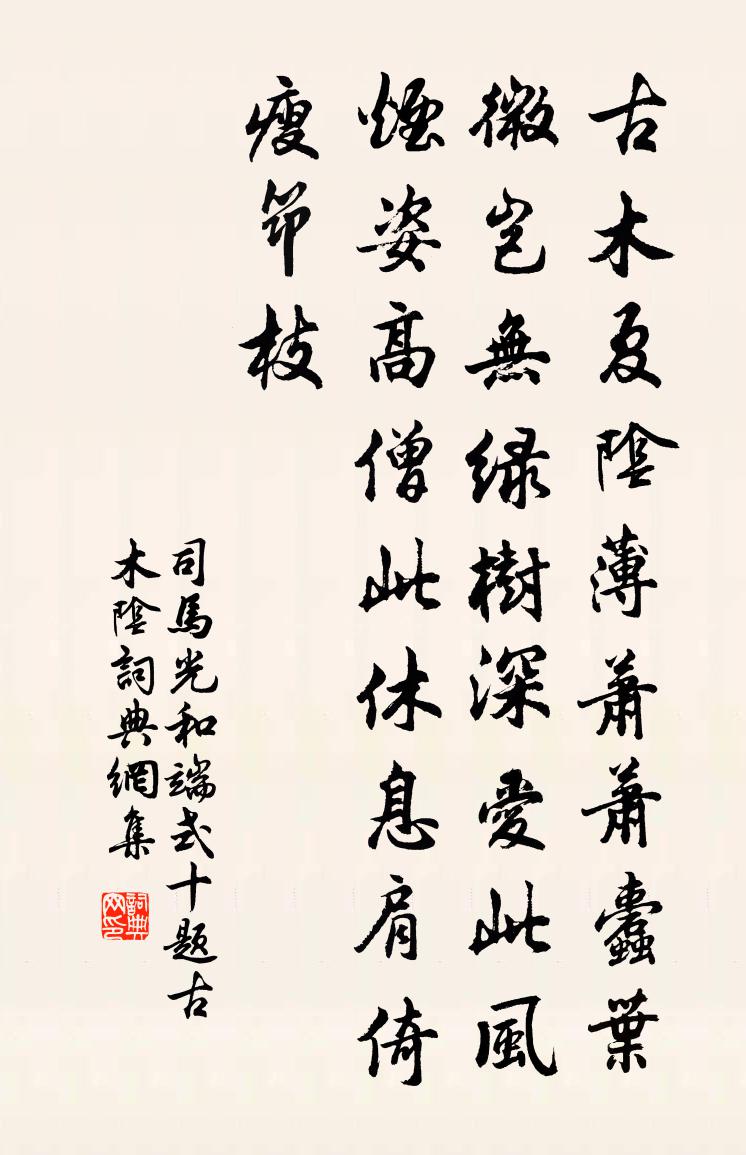 古木夏陰薄蕭蕭蠹葉
微豈無綠樹深愛此風
煙姿高僧此休息肩倚
瘦笻枝
司馬光和端式十題古
木陰詞典網集
詞典网印